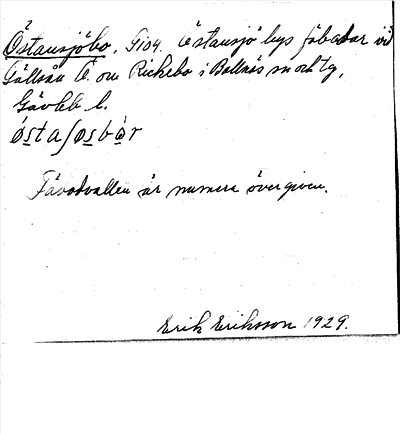 Östansjöbo, G104. Östansjö bys fäbodar vid
Gällsån Ö. om Rickebo i Bollnäs sn och tg,
Gävleb l.
östaʃøsbòr
Fäbodvallen är numera övergiven.
Erik Eriksson 1929.